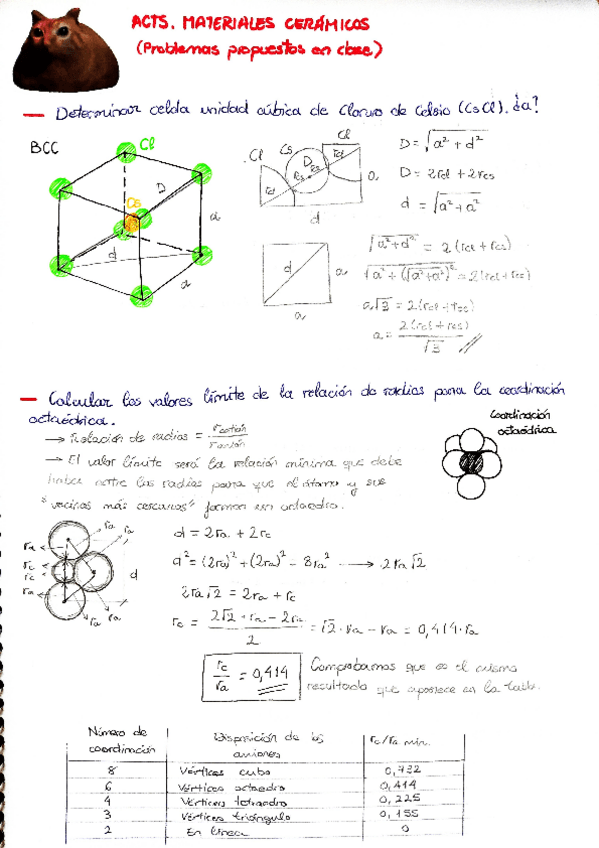 ACTS. MATERIALES CERÁMICOS
(Problemas propuestos en clase)
— Determinar celda unidad cúbica de Cloruro de Celsio (CsCl). ¿a?
BCC
Cl
Cs
D
a
d
a
Cl
Cs
Cl
D
rcl
rcs
rcs
rcl
a
d
d
a
a
D = √(a² + d²)
D = 2rcl + 2rcs
d = √(a² + a²)
√(a² + d²) = 2 (rcl + rcs)
√(a² + (√(a² + a²))²) = 2 (rcl + rcs)
a√3 = 2 (rcl + rcs)
a = 2 (rcl + rcs) / √3
— Calcular los valores límite de la relación de radios para la coordinación
octaédrica.
→ Relación de radios = rcatión / ranión
Coordinación
octaédrica
→ El valor límite será la relación mínima que debe
haber entre los radios para que el átomo y sus
"vecinos más cercanos" formen un octaedro.
ra
ra
ra
rc
rc
ra
d
ra
ra
d = 2ra + 2rc
d² = (2ra)² + (2ra)² = 8ra² → 2ra√2
2ra√2 = 2ra + rc
rc = (2√2 · ra − 2ra) / 2 = √2 · ra − ra = 0,414 · ra
rc / ra = 0,414
Comprobamos que es el mismo
resultado que aparece en la tabla.
Número de coordinación | Disposición de los aniones | rc/ra min.
8 | Vértices cubo | 0,732
6 | Vértices octaedro | 0,414
4 | Vértices tetraedro | 0,225
3 | Vértices triángulo | 0,155
2 | En línea | 0